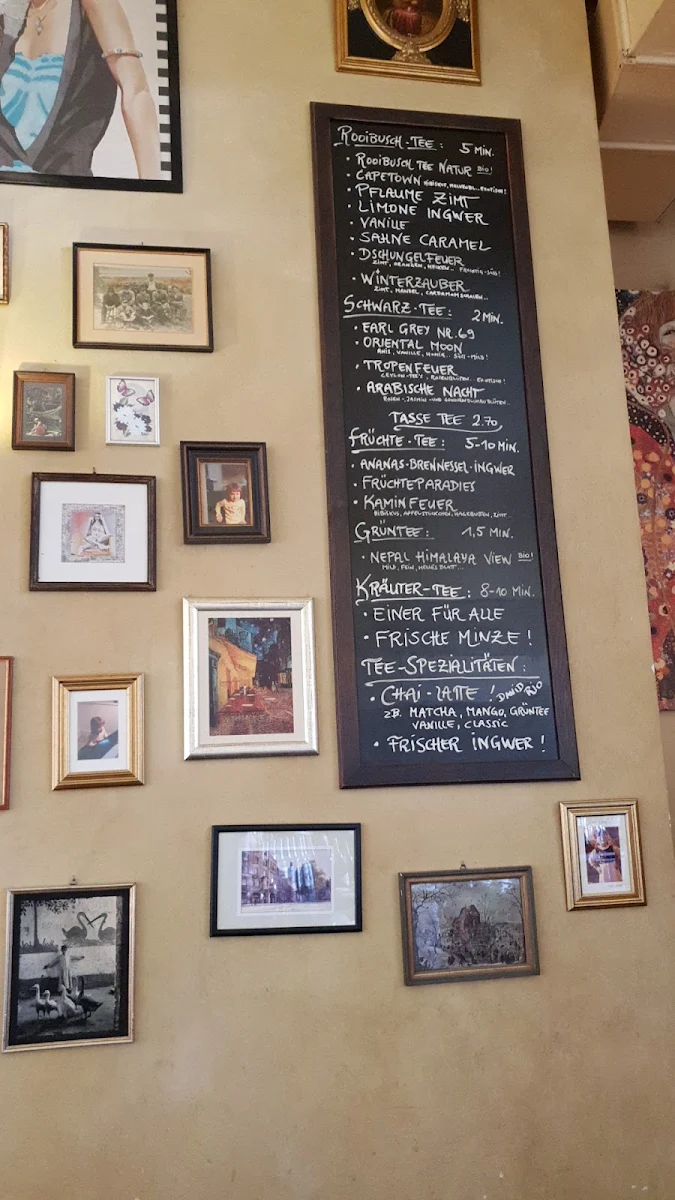 ROOIBUSCH-TEE: 5 MIN.
• ROOIBUSCH TEE NATUR BIO!
• CAPETOWN
• PFLAUME ZIMT
• LIMONE INGWER
• VANILLE
• SAHNE CARAMEL
• DSCHUNGELFEUER
ZIMT, ORANGEN,
• WINTERZAUBER
ZIMT, MANDEL, CARDAMOM
SCHWARZ-TEE: 2 MIN.
• EARL GREY NR. 69
• ORIENTAL MOON
ANIS, VANILLE, HONIG... SÜSS-MILD!
• TROPENFEUER
CEYLON-TEE, ROSENBLÜTEN.. EXOTISCH!
• ARABISCHE NACHT
ROSEN-, JASMIN-UND SONNENBLUMENBLÜTEN..
TASSE TEE 2.70
FRÜCHTE-TEE: 5-10 MIN.
• ANANAS-BRENNESSEL-INGWER
• FRÜCHTEPARADIES
• KAMINFEUER
HIBISKUS, APFELSTÜCKCHEN, HAGEBUTTEN, ZIMT..
GRÜNTEE: 1,5 MIN.
• NEPAL HIMALAYA VIEW BIO!
MILD, FEIN, HELLES BLATT...
KRÄUTER-TEE: 8-10 MIN.
• EINER FÜR ALLE
• FRISCHE MINZE!
TEE-SPEZIALITÄTEN:
• CHAI-LATTE! DAVID RIO
ZB. MATCHA, MANGO, GRÜNTEE
VANILLE, CLASSIC
• FRISCHER INGWER!